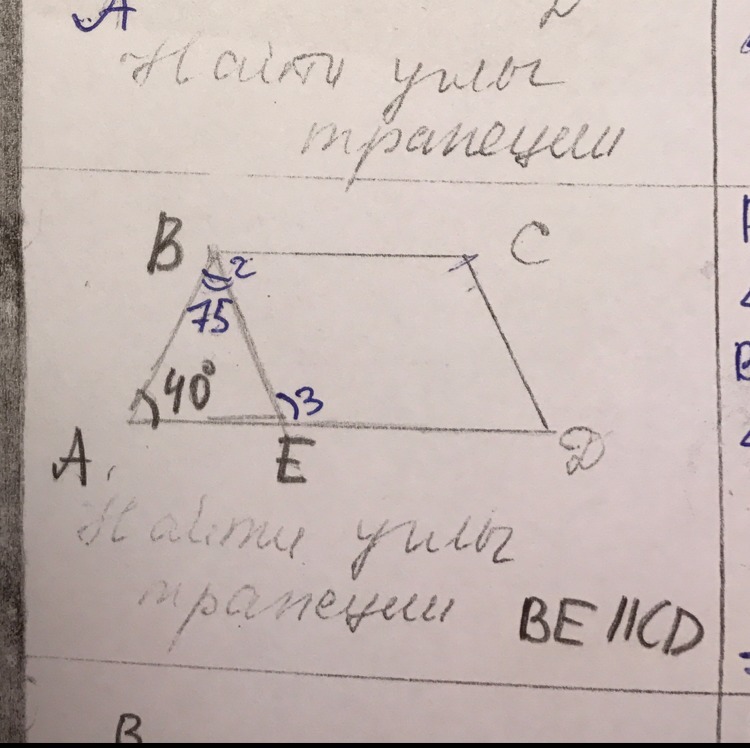 A
Найти углы
трапеции
B
C
2
75
40°
3
A
E
D
Найти углы
трапеции
BE || CD
B